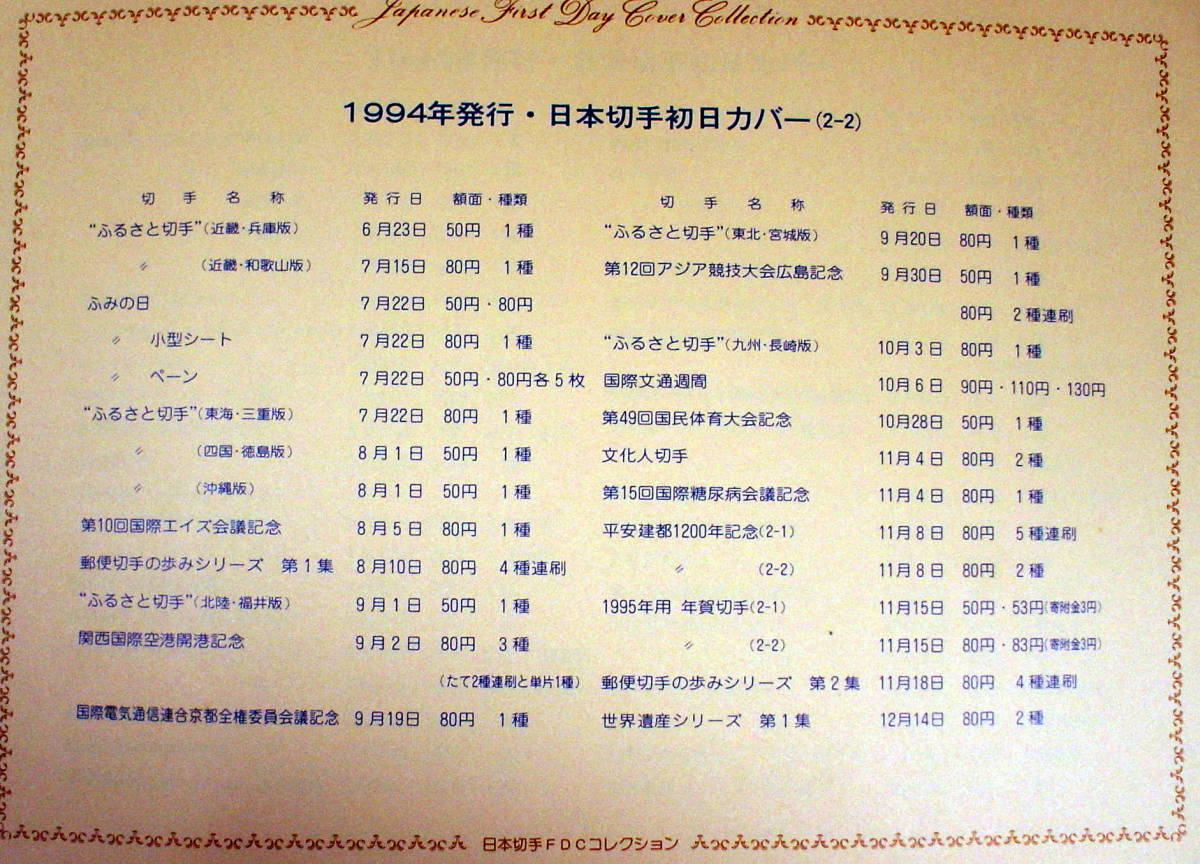 Japanese First Day Cover Collection
1994年発行・日本切手初日カバー(2-2)
切手名称 発行日 額面・種類
“ふるさと切手”(近畿・兵庫版) 6月23日 50円 1種
〃 (近畿・和歌山版) 7月15日 80円 1種
ふみの日 7月22日 50円・80円
〃 小型シート 7月22日 80円 1種
〃 ペーン 7月22日 50円・80円各5枚
“ふるさと切手”(東海・三重版) 7月22日 80円 1種
〃 (四国・徳島版) 8月1日 50円 1種
〃 (沖縄版) 8月1日 50円 1種
第10回国際エイズ会議記念 8月5日 80円 1種
郵便切手の歩みシリーズ 第1集 8月10日 80円 4種連刷
“ふるさと切手”(北陸・福井版) 9月1日 50円 1種
関西国際空港開港記念 9月2日 80円 3種
(たて2種連刷と単片1種)
国際電気通信連合京都全権委員会議記念 9月19日 80円 1種
切手名称 発行日 額面・種類
“ふるさと切手”(東北・宮城版) 9月20日 80円 1種
第12回アジア競技大会広島記念 9月30日 50円 1種
80円 2種連刷
“ふるさと切手”(九州・長崎版) 10月3日 80円 1種
国際文通週間 10月6日 90円・110円・130円
第49回国民体育大会記念 10月28日 50円 1種
文化人切手 11月4日 80円 2種
第15回国際糖尿病会議記念 11月4日 80円 1種
平安建都1200年記念(2-1) 11月8日 80円 5種連刷
〃 (2-2) 11月8日 80円 2種
1995年用 年賀切手(2-1) 11月15日 50円・53円(寄附金3円)
〃 (2-2) 11月15日 80円・83円(寄附金3円)
郵便切手の歩みシリーズ 第2集 11月18日 80円 4種連刷
世界遺産シリーズ 第1集 12月14日 80円 2種
日本切手FDCコレクション